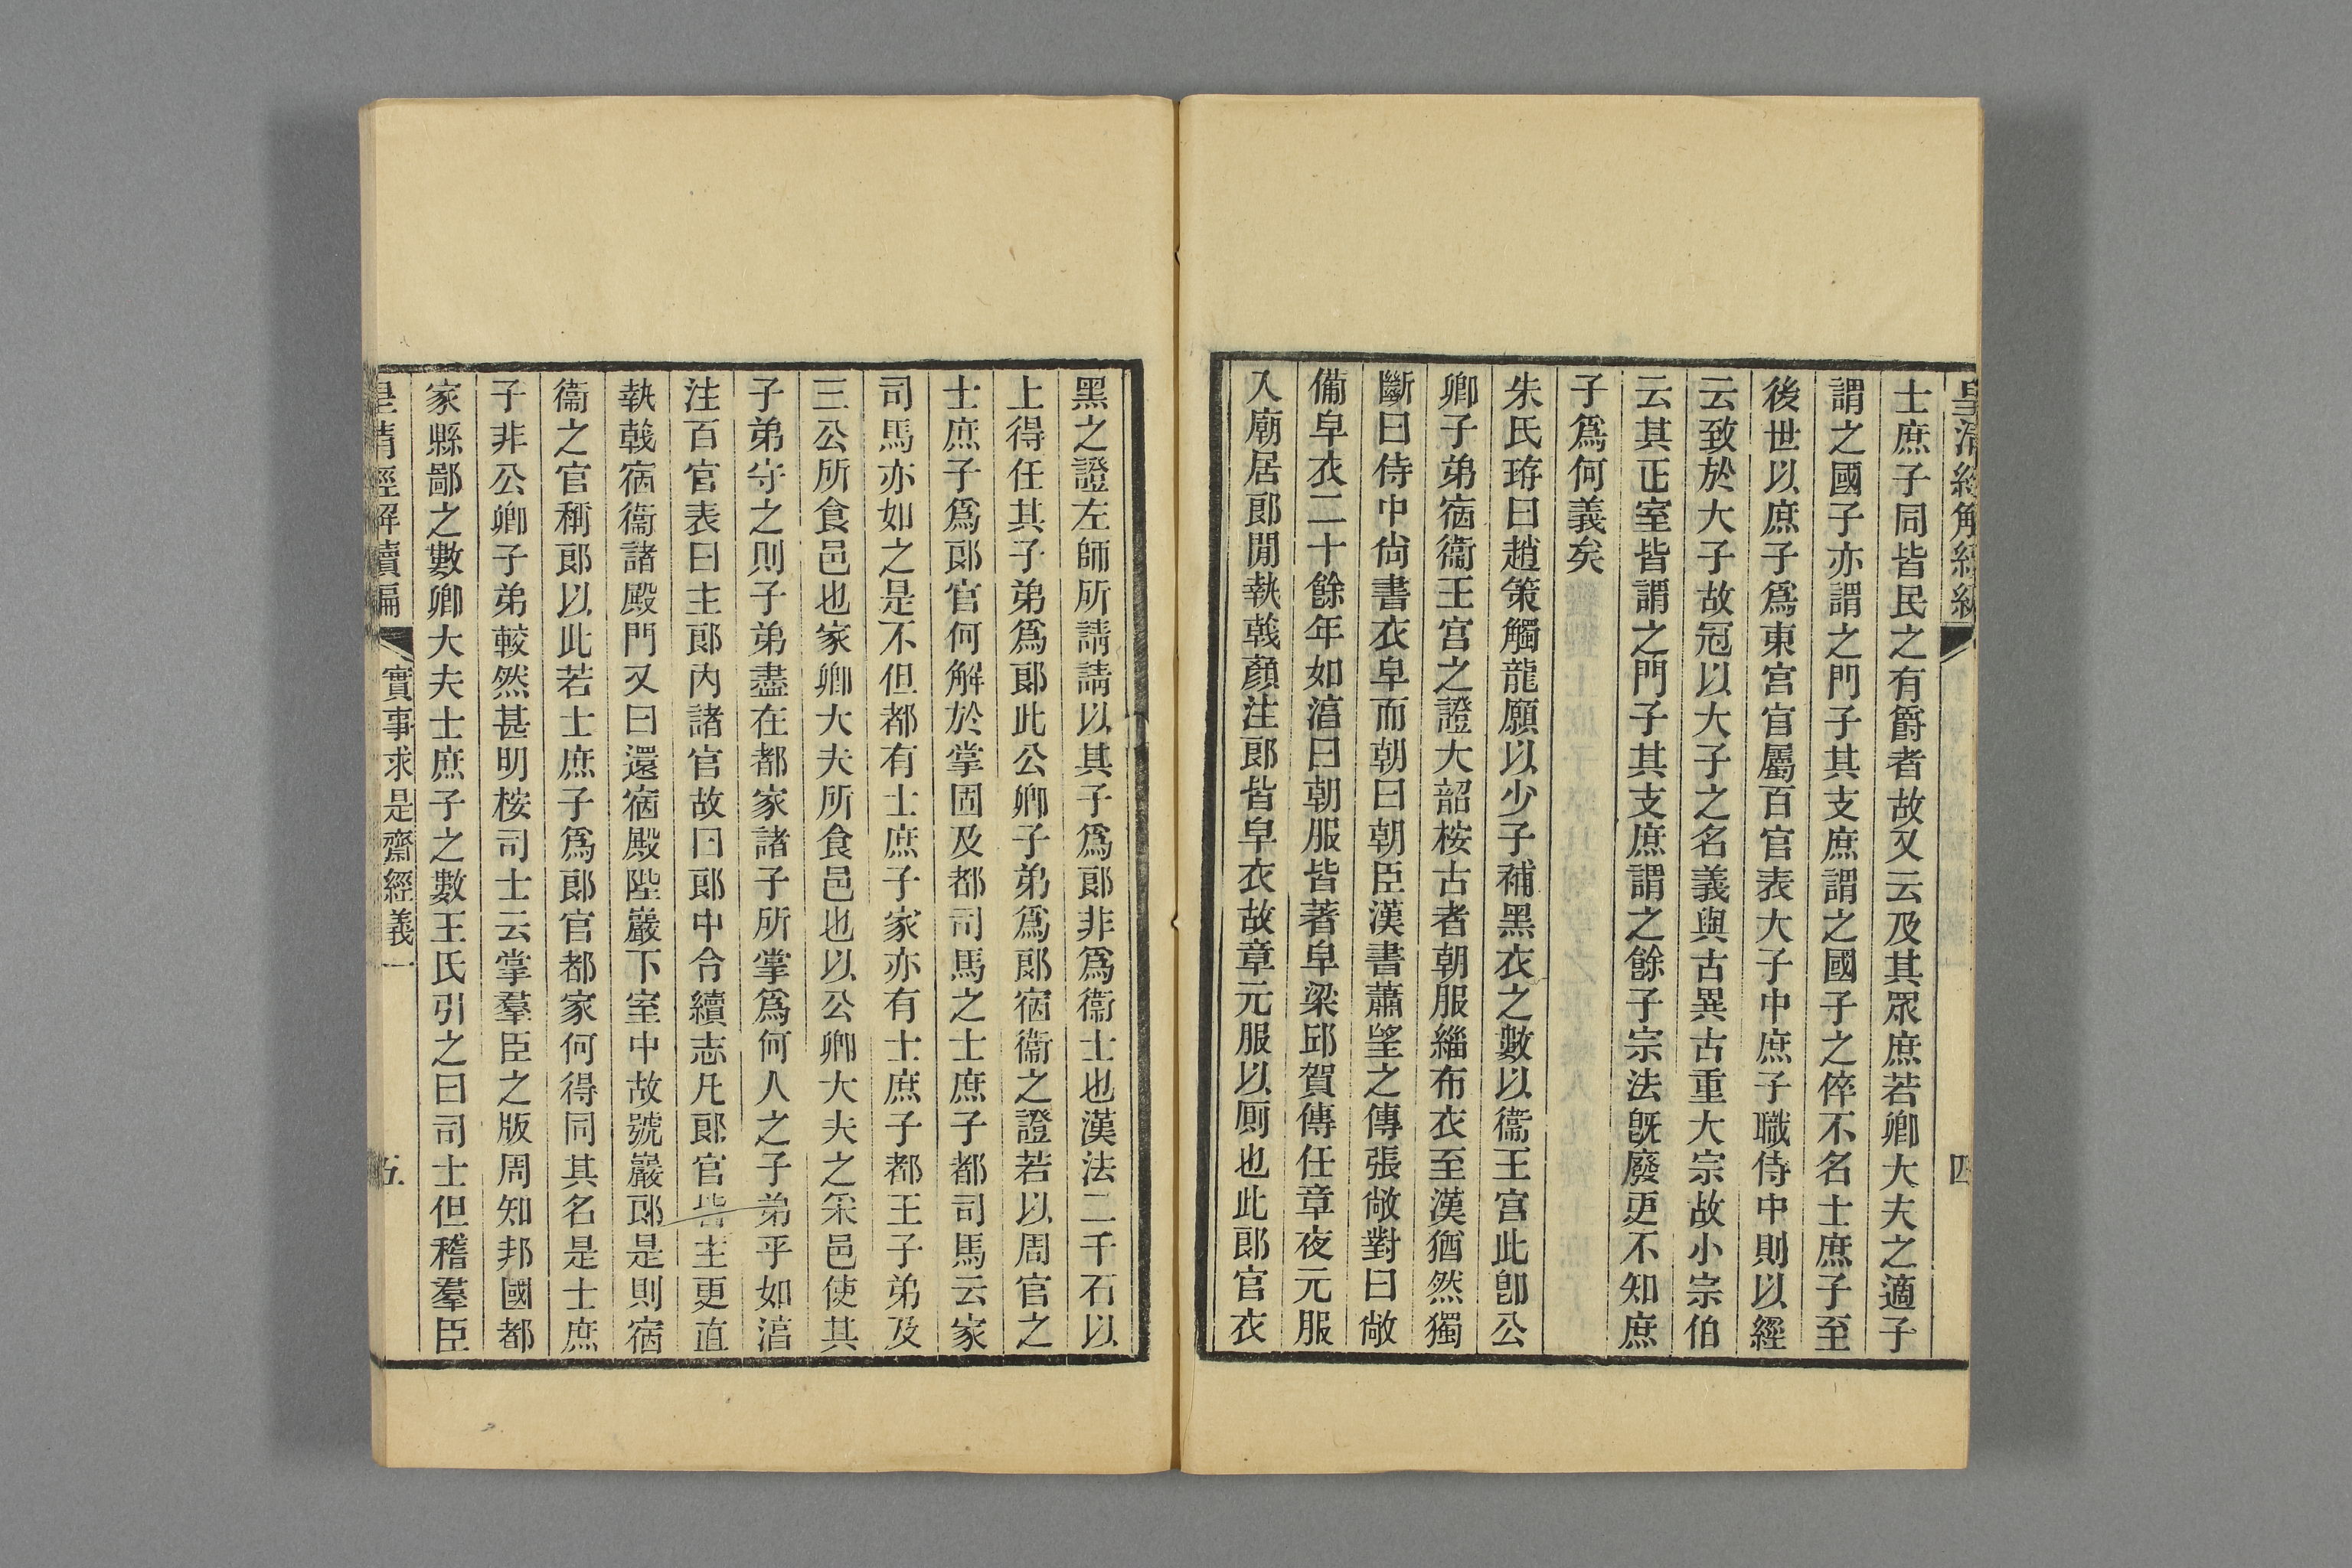 皇清經解續編
四
士庶子同皆民之有爵者故又云及其眾庶若卿大夫之適子
謂之國子亦謂之門子其支庶謂之國子之倅不名士庶子至
後世以庶子爲東宮官屬百官表大子中庶子職侍中則以經
云致於大子故冠以大子之名義與古異古重大宗故小宗伯
云其正室皆謂之門子其支庶謂之餘子宗法旣廢更不知庶
子爲何義矣
朱氏珔曰趙策觸龍願以少子補黑衣之數以衞王宮此卽公
卿子弟宿衞王宮之證大韶桉古者朝服緇布衣至漢猶然獨
斷曰侍中尙書衣皁而朝曰朝臣漢書蕭望之傳張敞對曰敞
備皁衣二十餘年如湻曰朝服皆著皁梁邱賀傳任章夜元服
入廟居郞閒執戟顏注郞皆皁衣故章元服以厠也此郞官衣
黑之證左師所請請以其子爲郞非爲衞士也漢法二千石以
上得任其子弟爲郞此公卿子弟爲郞宿衞之證若以周官之
士庶子爲郞官何解於掌固及都司馬之士庶子都司馬云家
司馬亦如之是不但都有士庶子家亦有士庶子都王子弟及
三公所食邑也家卿大夫所食邑也以公卿大夫之采邑使其
子弟守之則子弟盡在都家諸子所掌爲何人之子弟乎如湻
注百官表曰主郞內諸官故曰郞中令續志凡郞官皆主更直
執戟宿衞諸殿門又曰還宿殿陛巖下室中故號巖郞是則宿
衞之官稱郞以此若士庶子爲郞官都家何得同其名是士庶
子非公卿子弟較然甚明桉司士云掌羣臣之版周知邦國都
家縣鄙之數卿大夫士庶子之數王氏引之曰司士但稽羣臣
皇清經解續編
實事求是齋經義一
五